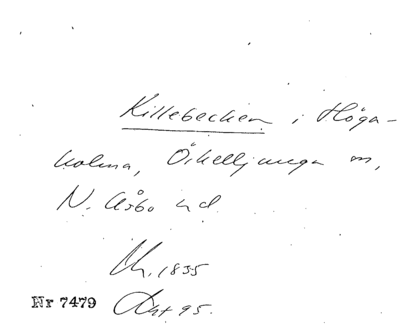 Killebecken i Höga-
holma, Örkelljunga sn,
N. Åsbo hd
Uk. 1835
Nr 7479